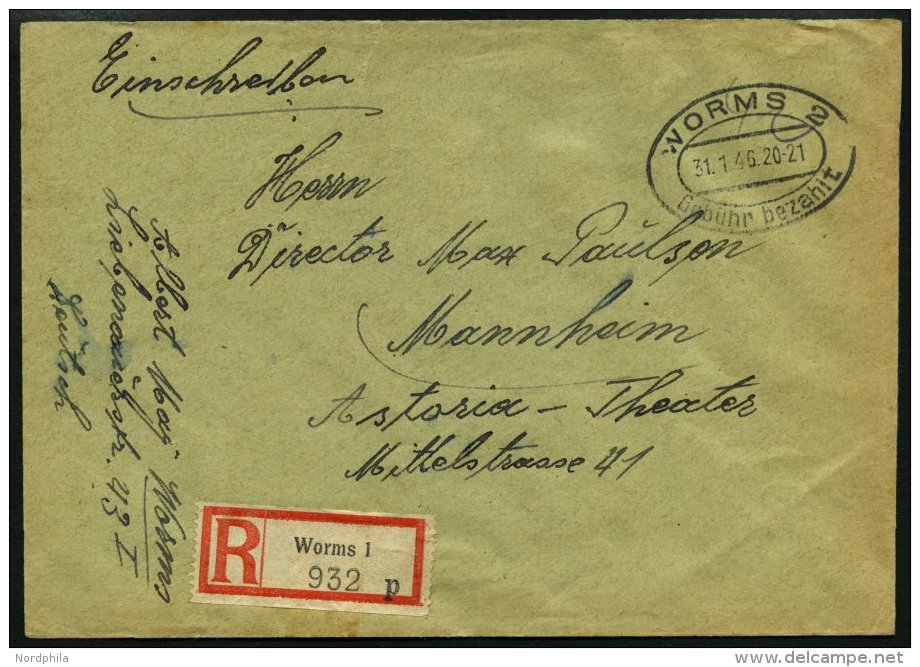 Einschreiben
WORMS 2
31.1.46.20-21
Gebühr bezahlt
Herrn
Director Max Paulson
Mannheim
Astoria - Theater
Mittelstrasse 41
Albert May Worms
Liebenauerstr. 43 I
Deutsch
R
Worms 1
932 p
Nordphila
www.delcampe.net